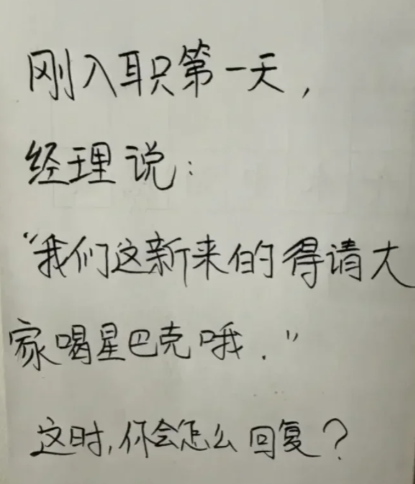 刚入职第一天，
经理说：
“我们这新来的得请大
家喝星巴克哦．”
这时，你会怎么回复？